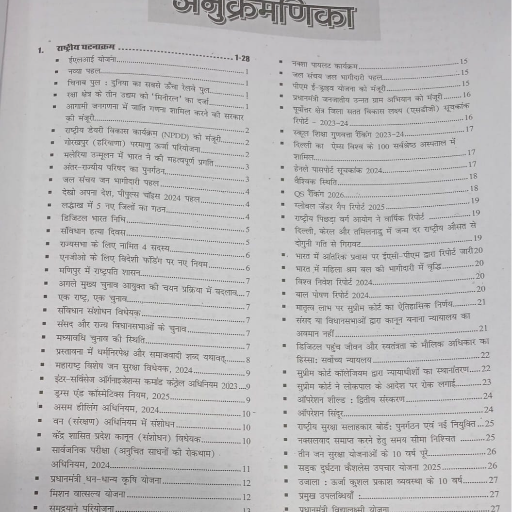 अनुक्रमणिका
1. राष्ट्रीय घटनाक्रम 1-28
ईएलआई योजना 1
नव्या पहल 1
चिनाब पुल : दुनिया का सबसे ऊँचा रेलवे पुल 1
रक्षा क्षेत्र के तीन उद्यम को 'मिनीरत्न' का दर्जा 1
आगामी जनगणना में जाति गणना शामिल करने की सरकार
की मंजूरी 2
राष्ट्रीय डेयरी विकास कार्यक्रम (NPDD) को मंजूरी 2
गोरखपुर (हरियाणा) परमाणु ऊर्जा परियोजना 2
मलेरिया उन्मूलन में भारत ने की महत्वपूर्ण प्रगति 3
अंतर-राज्यीय परिषद का पुनर्गठन 3
जल संचय जन भागीदारी पहल 3
देखो अपना देश, पीपुल्स चॉइस 2024 पहल 4
लद्दाख में 5 नए जिलों का गठन 4
डिजिटल भारत निधि 4
संविधान हत्या दिवस 5
राज्यसभा के लिए नामित 4 सदस्य 5
एनजीओ के लिए विदेशी फंडिंग पर नए नियम 6
मणिपुर में राष्ट्रपति शासन 6
अगले मुख्य चुनाव आयुक्त की चयन प्रक्रिया में बदलाव 7
एक राष्ट्र, एक चुनाव 7
संविधान संशोधन विधेयक 7
संसद और राज्य विधानसभाओं के चुनाव 7
मध्यावधि चुनाव की स्थिति 7
प्रस्तावना में धर्मनिरपेक्ष और समाजवादी शब्द यथावत् 8
महाराष्ट्र विशेष जन सुरक्षा विधेयक, 2024 9
इंटर-सर्विसेज ऑर्गनाइजेशन्स कमांड कंट्रोल अधिनियम 2023 9
ड्रग्स एंड कॉस्मेटिक्स नियम, 2025 9
असम हीलिंग अधिनियम, 2024 10
वन (संरक्षण) अधिनियम में संशोधन 10
केंद्र शासित प्रदेश कानून (संशोधन) विधेयक 10
सार्वजनिक परीक्षा (अनुचित साधनों की रोकथाम)
अधिनियम, 2024 11
प्रधानमंत्री धन-धान्य कृषि योजना 12
मिशन वात्सल्य योजना 12
समुद्रयान परियोजना 13
नक्शा पायलट कार्यक्रम 15
जल संचय जल भागीदारी पहल 15
पीएम ई-ड्राइव योजना को मंजूरी 15
प्रधानमंत्री जनजातीय उन्नत ग्राम अभियान को मंजूरी 16
पूर्वोत्तर क्षेत्र जिला सतत विकास लक्ष्य (एसडीजी) सूचकांक
रिपोर्ट - 2023-24 16
स्कूल शिक्षा गुणवत्ता रैंकिंग 2023-24 17
दिल्ली का एम्स विश्व के 100 सर्वश्रेष्ठ अस्पताल में
शामिल 17
हेनले पासपोर्ट सूचकांक 2024 17
वैश्विक स्थिति 18
QS रैंकिंग 2026 18
ग्लोबल जेंडर गैप रिपोर्ट 2025 19
राष्ट्रीय पिछड़ा वर्ग आयोग ने वार्षिक रिपोर्ट 19
दिल्ली, केरल और तमिलनाडु में जन्म दर राष्ट्रीय औसत से
दोगुनी गति से गिरावट 19
भारत में आंतरिक प्रवास पर ईएसी-पीएम द्वारा रिपोर्ट जारी 20
भारत में महिला श्रम बल की भागीदारी में वृद्धि 20
विश्व निवेश रिपोर्ट 2024 20
बाल पोषण रिपोर्ट 2024 20
मातृत्व लाभ पर सुप्रीम कोर्ट का ऐतिहासिक निर्णय 21
संसद या विधानसभाओं द्वारा कानून बनाना न्यायालय का
अवमान नहीं 21
डिजिटल पहुंच जीवन और स्वतंत्रता के मौलिक अधिकार का
हिस्सा: सर्वोच्च न्यायालय 22
सुप्रीम कोर्ट कॉलेजियम द्वारा न्यायाधीशों का स्थानांतरण 22
सुप्रीम कोर्ट ने लोकपाल के आदेश पर रोक लगाई 23
ऑपरेशन शील्ड : द्वितीय संस्करण 24
ऑपरेशन सिंदूर 24
राष्ट्रीय सुरक्षा सलाहकार बोर्ड: पुनर्गठन एवं नई नियुक्ति 25
नक्सलवाद समाप्त करने हेतु समय सीमा निश्चित 25
तीन जन सुरक्षा योजनाओं के 10 वर्ष पूरे 26
सड़क दुर्घटना कैशलेस उपचार योजना 2025 26
उजाला : ऊर्जा कुशल प्रकाश व्यवस्था के 10 वर्ष 27
प्रमुख उपलब्धियाँ : 27
प्रधानमंत्री विद्यालक्ष्मी योजना 27